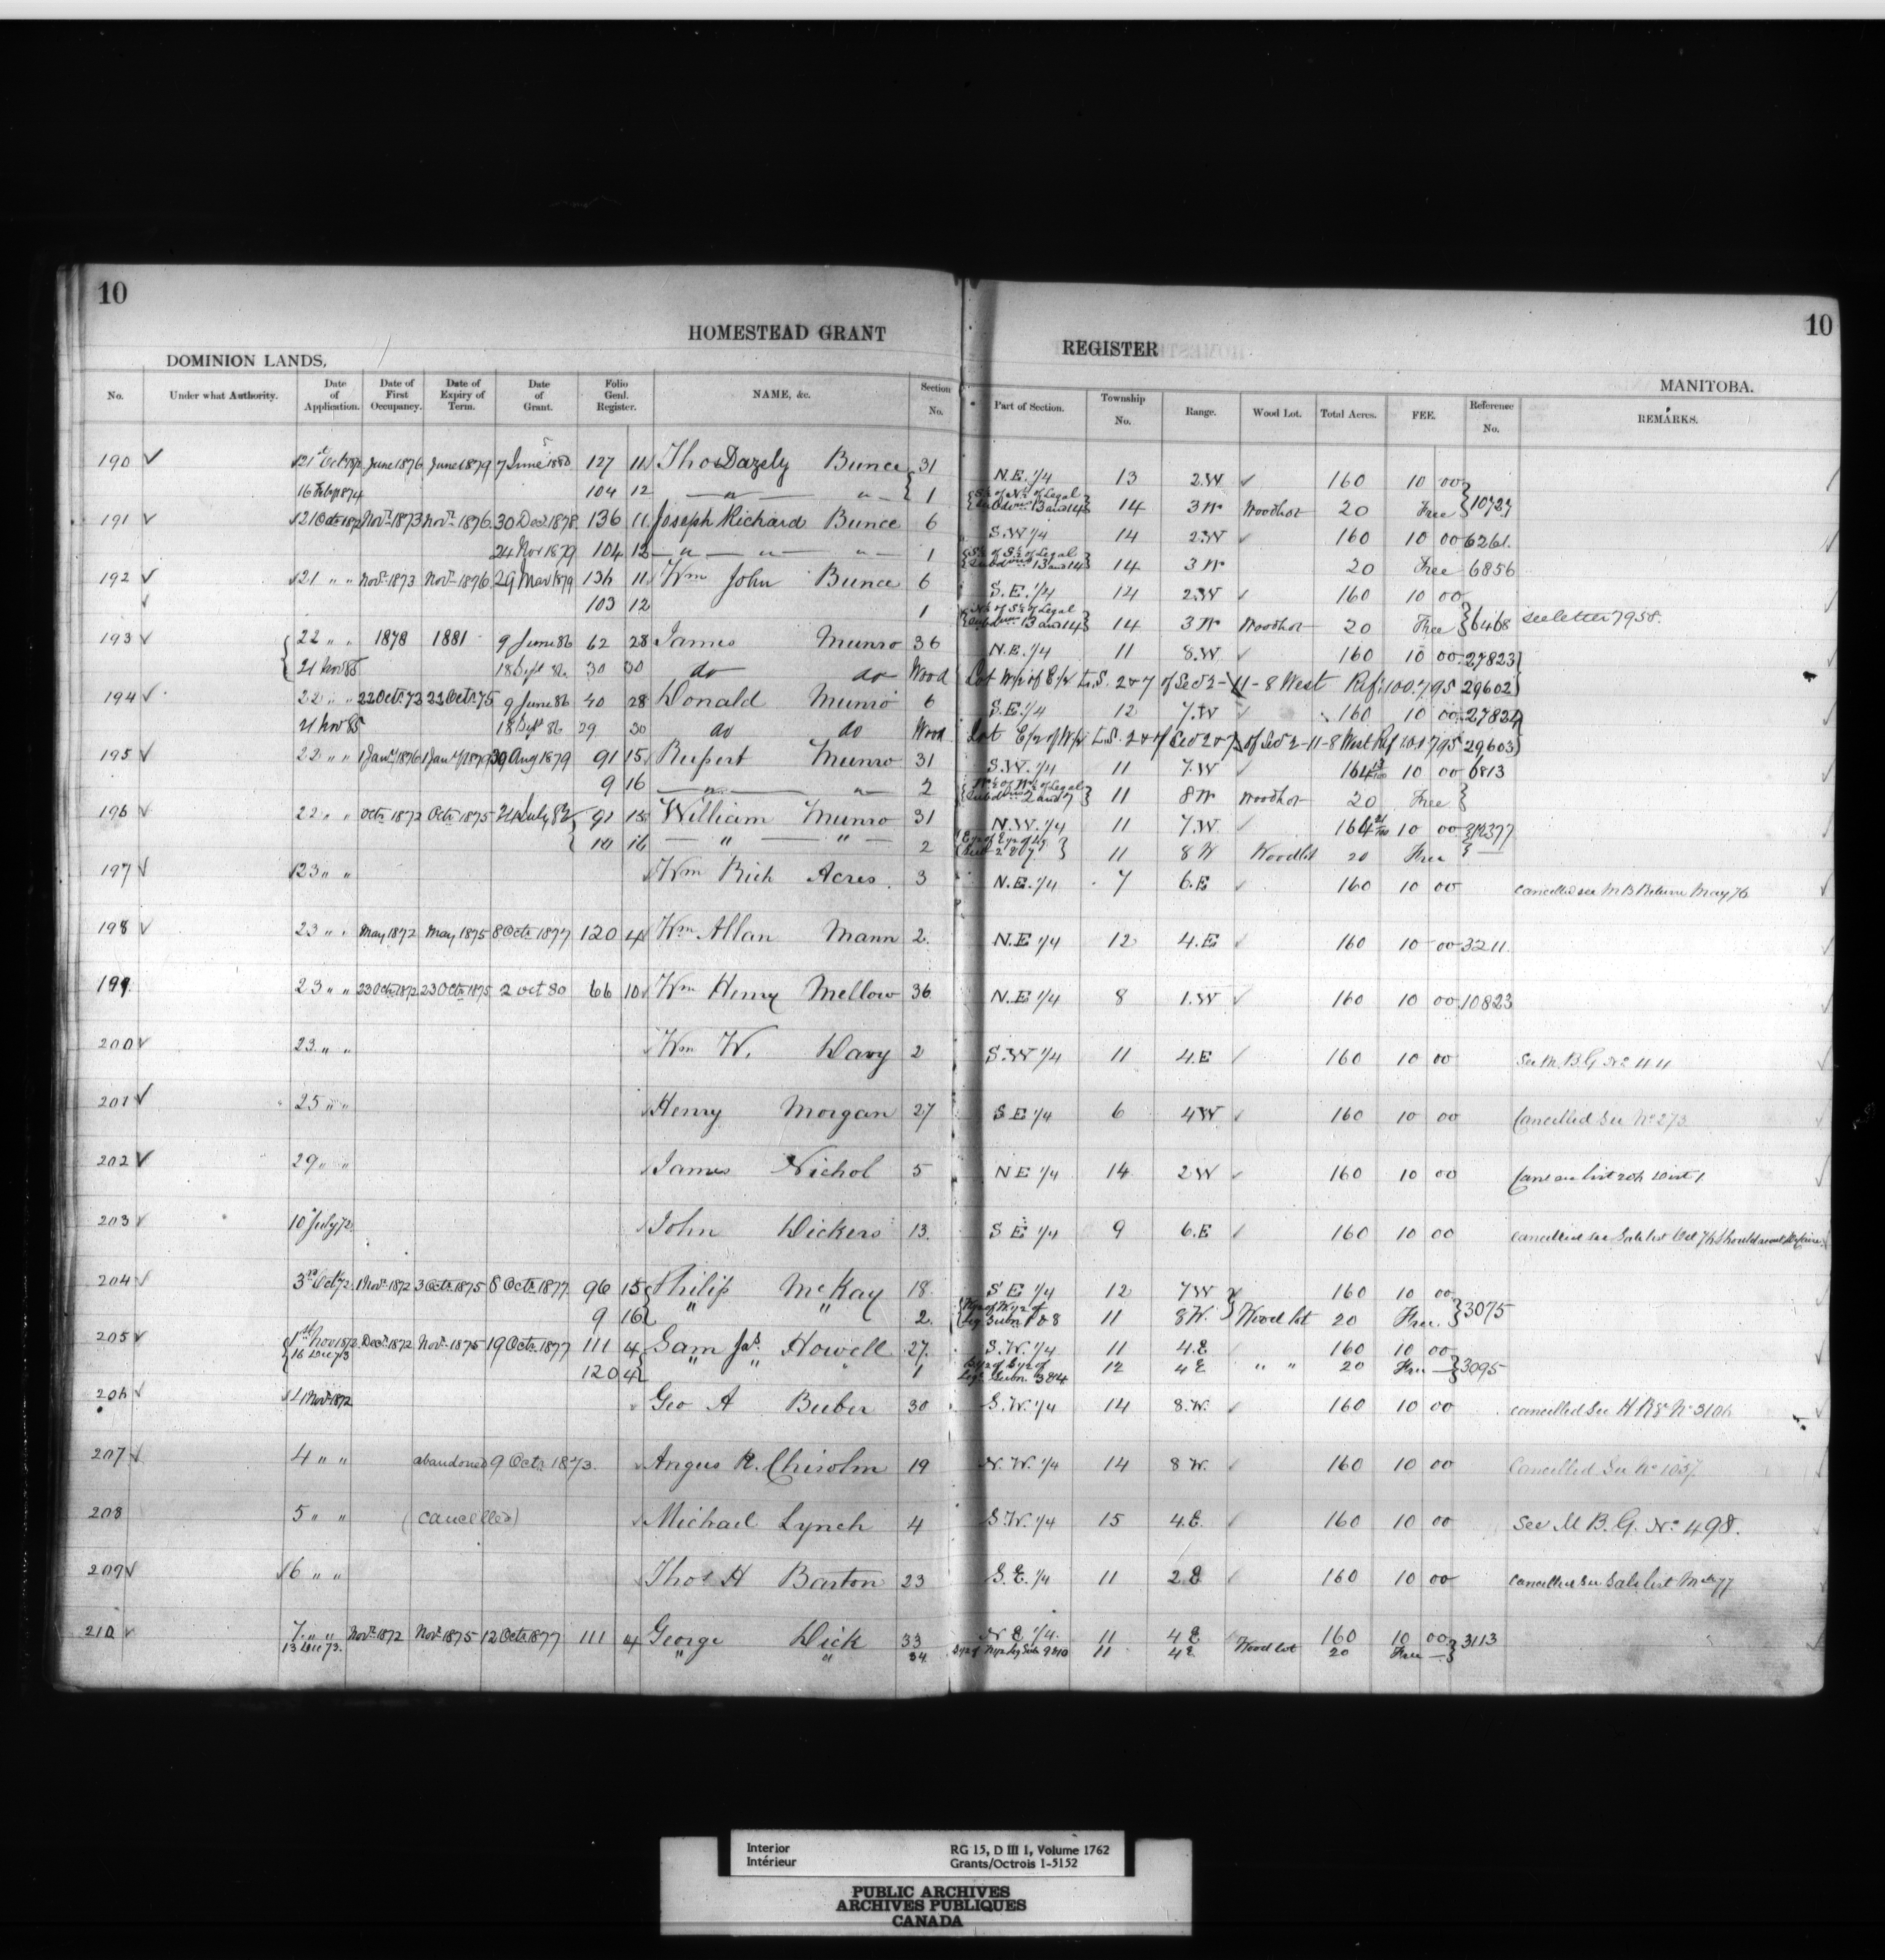 10
10
HOMESTEAD GRANT REGISTER
DOMINION LANDS, MANITOBA.
No. Under what Authority. Date of Application. Date of First Occupancy. Date of Expiry of Term. Date of Grant. Folio Genl. Register. NAME, &c. Section No. Part of Section. Township No. Range. Wood Lot. Total Acres. FEE. Reference No. REMARKS.
190 21st Oct 1872 June 1876 June 1879 7 June 1880 127 11 Thos Dazely Bunce 31 N.E. 1/4 13 2.W 160 10 00
16 Feby 1874 104 12 " " 1 of Legal Subdns 13 and 14 14 3 W Woodlot 20 Free 10727
191 21 Octr 1872 Novr 1873 Novr 1876 30 Decr 1878 136 11 Joseph Richard Bunce 6 S.W 1/4 14 2.W 160 10 00 6261.
24 Nov 1879 104 12 " " " 1 of Legal Subdns 13 and 14 14 3 W 20 Free 6856
192 21 " " Novr 1873 Novr 1876 29 Mar 1879 136 11 Wm John Bunce 6 S.E. 1/4 14 2.W 160 10 00
103 12 1 of Legal Subdns 13 and 14 14 3 W Woodlot 20 Free 6468 see letter 7958.
193 22 " " 1878 1881 9 June 86 62 28 James Munro 36 N.E. 1/4 11 8.W 160 10 00 27823
21 Nov 85 18 Sept 86 30 30 do do Wood Lot W/2 of E/2 L.S. 2 & 7 of Sec 2-11-8 West Ref: 100.795 29602
194 22 " " 22 Octr. 72 22 Octr. 75 9 June 86 40 28 Donald Munro 6 S.E. 1/4 12 7.W 160 10 00 27824
21 Nov 85 18 Sept 86 29 30 do do Wood Lot E/2 of W/2 L.S. 2 & of Sec 2 & 7 of Sec 2-11-8 West Ref 100795 29603
195 22 " " 1 Jany 1876 1 Jany 1879 30 Aug 1879 91 15 Rupert Munro 31 S.W. 1/4 11 7.W 164 10 00 6813
9 16 " " 2 of Legal Subdns 2 and 7 11 8 W Woodlot 20 Free
196 22 " " Octr 1872 Octr 1875 24 July 82 91 15 William Munro 31 N.W. 1/4 11 7.W 164 10 00 32377
10 16 " " 2 11 8 W Woodlot 20 Free
197 23 " " Wm Rich Acres 3 N.E. 1/4 7 6.E 160 10 00 cancelled see M B Return May 76
198 23 " " May 1872 May 1875 8 Octr 1877 120 4 Wm Allan Mann 2. N.E 1/4 12 4.E 160 10 00 3211.
199 23 " " 23 Octr 1872 23 Octr 1875 2 Oct 80 66 10 Wm Henry Mellow 36 N.E 1/4 8 1.W 160 10 00 10823
200 23 " " Wm W. Davy 2 S.W 1/4 11 4.E 160 10 00 See M.B.G No 44
201 25 " " Henry Morgan 27 S E 1/4 6 4W 160 10 00 Cancelled See No 273
202 29 " " James Nichol 5 N E 1/4 14 2 W 160 10 00
203 10 July 72 John Dickers 13. S E 1/4 9 6.E 160 10 00 cancelled see Sale list Oct 76
204 3rd Oct 72. 1 Novr 1872 3 Octr. 1875 8 Octr. 1877 96 15 Philip McKay 18. S E 1/4 12 7W 160 10 00
9 16 " " 2. 11 8W. Wood lot 20 Free 3075
205 1st Nov 1872 Decr 1872 Novr 1875 19 Octr. 1877 111 4 Sam Jas. Howell 27. S.W. 1/4 11 4.E 160 10 00
16 Dec 73 120 4 " " " 1 12 4 E " " 20 Free 3095
206 4 Novr 1872 Geo A Bieber 30 S.W. 1/4 14 8.W. 160 10 00 cancelled See H R
207 4 " " abandoned 9 Octr. 1873. Angus R. Chisolm 19 N.W. 1/4 14 8 W. 160 10 00 Cancelled See No 1057.
208 5 " " (cancelled) Michael Lynch 4 S.W. 1/4 15 4.E. 160 10 00 See M.B.G. No 498.
209 6 " " Thos H Barton 23 S.E. 1/4 11 2.E 160 10 00 cancelled see Sale list Mch 77
210 7 " " Novr. 1872 Novr 1875 12 Octr 1877 111 4 George Dick 33 N E 1/4. 11 4 E 160 10 00 3113
13 Dec 73. " " 34. 11 4 E Wood lot 20 Free
Interior RG 15, D III 1, Volume 1762
Intérieur Grants/Octrois 1-5152
PUBLIC ARCHIVES
ARCHIVES PUBLIQUES
CANADA